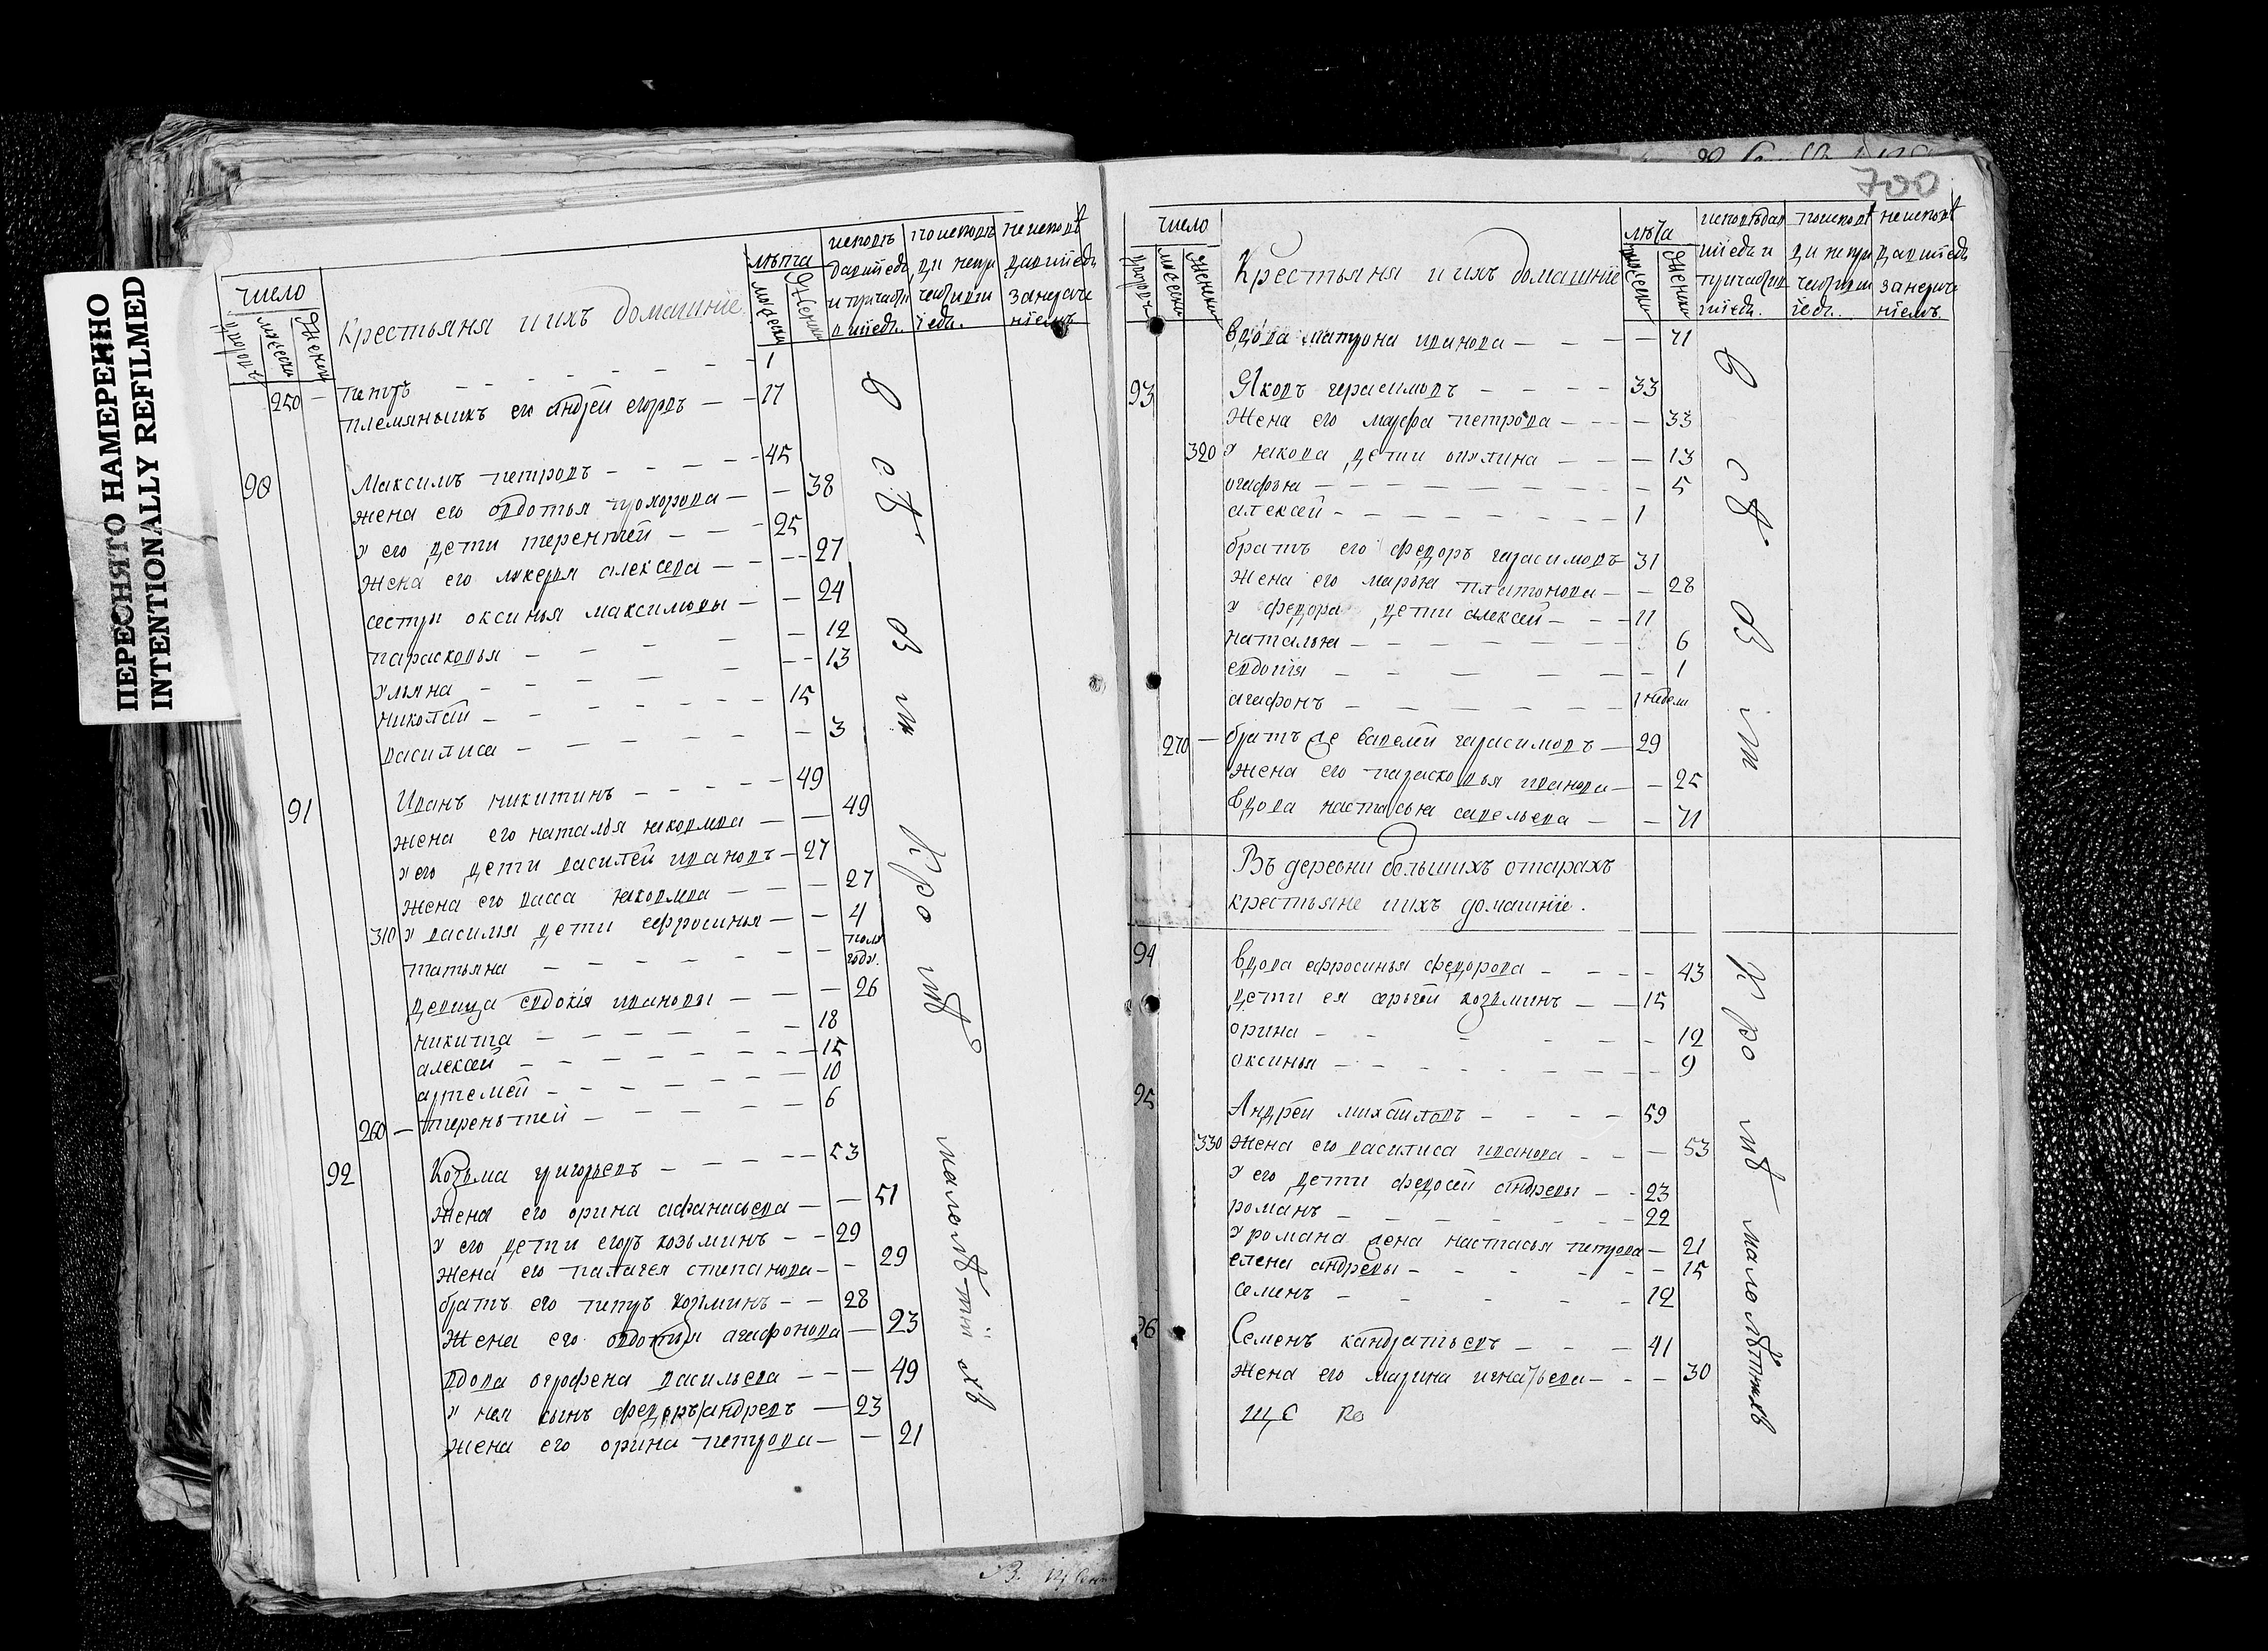 ПЕРЕСНЯТО НАМЕРЕННО
INTENTIONALLY REFILMED
число
дворовъ
мужески
женски
Крестьяня и ихъ домашніе
лѣта
мужески
женски
исповѣ
давшіеся
и причасти
вшіеся.
по исповѣ
ди непри
частивши
іеся.
не исповѣ
давшіеся
за нераче
ніемъ
250 — петръ — 1
племянникъ его андреи егоровъ — 17
90 Максимъ петровъ — 45
жена его овдотья прохорова — 38
у его дети терентей — 25
жена его лукерья алексеева — 27
сестры оксинья максимовы — 24
парасковья — 12
ульяна — 13
николай — 15
василиса — 3
91 Иванъ никитинъ — 49
жена его наталья яковлева — 49
у его дети василей ивановъ — 27
жена его васса яковлева — 27
310 у василья дети ефросинья — 4
татьяна — полу
году.
девица евдокія ивановы — 26
никита — 18
алексей — 15
артемей — 10
260 — терентей — 6
92 Козьма григорьевъ — 53
жена его орина афанасьева — 51
у его дети егоръ козьминъ — 29
жена его палагея степанова — 29
братъ его петръ козминъ — 28
жена его овдотья агафонова — 23
вдова огрофена васильева — 49
у нея сынъ федоръ андревъ — 23
жена его орина петрова — 21
в сѣ оз ми кро мѣ малолѣтнихъ
700
число
дворовъ
мужески
женски
Крестьяня и ихъ домашніе
лѣта
мужески
женски
исповѣдав
шіеся и
причастив
шіеся.
по исповѣ
ди непри
частивши
іеся.
не исповѣ
давшіеся
за нерачи
ніемъ.
вдова матрона иванова — 71
93 Яковъ герасимовъ — 33
жена его марфа петрова — 33
320 у якова дети опилина — 13
огафья — 5
алексей — 1
братъ его федоръ гарасимовъ 31
жена его марья платонова — 28
у федора дети алексей — 11
наталья — 6
евдокія — 1
агафонъ — 1 недели
270 — братъ же савелей гарасимовъ — 29
жена его парасковья иванова — 25
вдова настасья савельева — 71
Въ деревни большихъ отарахъ
крестьяне и ихъ домашніе.
94 вдова ефросинья федорова — 43
дети ея сергей козьминъ — 15
орина — 12
оксинья — 9
95 Андрей михайловъ — 59
330 жена его василиса иванова — 53
у его дети федосей андревы — 23
романъ — 22
у романа жена настасья петрова — 21
елена андревы — 15
семенъ — 12
96 Семенъ кандратьевъ — 41
жена его марина игнатьева — 30
в сѣ оз ми
кро мѣ малолѣтнихъ